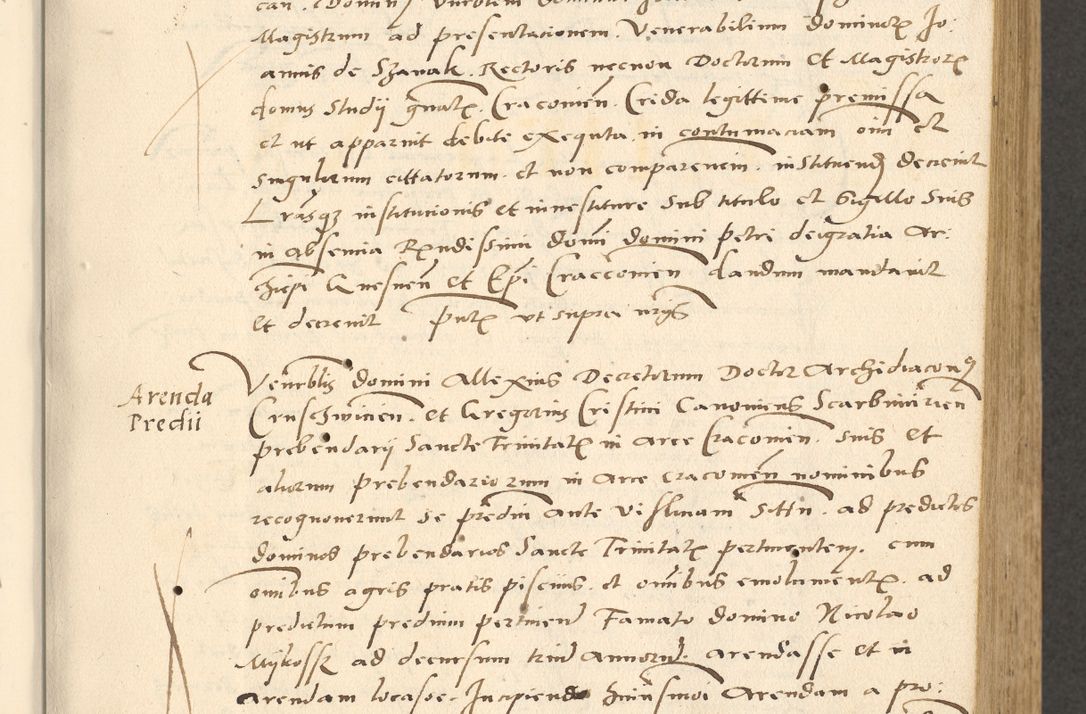 Magistrum ad presentacionem. Venerabilium dominorum Jo:
annis de Szanak. Rectoris necnon Doctorum Et Magistrorum
domus Studii gnalis. Cracouien. Crida legittime premissa
et ut apparuit debite exequta. in contumaciam oim et
singulorum cittatorum. et non comparencium. instituend decreuit
Lrasque institucionis et inuestiture sub titulo et sigillo suis
in absencia Rendissimi domi domini petri deigratia Ar:
chiepi Gnesnen Et Epi Craccouien dandum mandauit
Et decreuit putis ut supra
Venerblis domini Allexius Decretorum Doctor Archidiaconus
Cruschwicien. et Gregorius Cristini Canonicus Scarbimirien
prebendarii Sancte Trinitatis in Arce Cracouien. suis Et
aliorum prebendariorum in Arce cracouien nominibus
recognouerunt se predium Ante Vislinam Sittu. ad predictos
dominos prebendarios Sancte Trinitatis pertinentem. cum
omibus agris pratis piscinis. et omibus emolumentis. ad
predictum predium pertinen Famato domino Nicolao
Mykossk ad decursum trium Annorum. arendasse Et in
arendam locasse. Incipiendo huiusmoi Arendam a pro:
Arenda
Predii